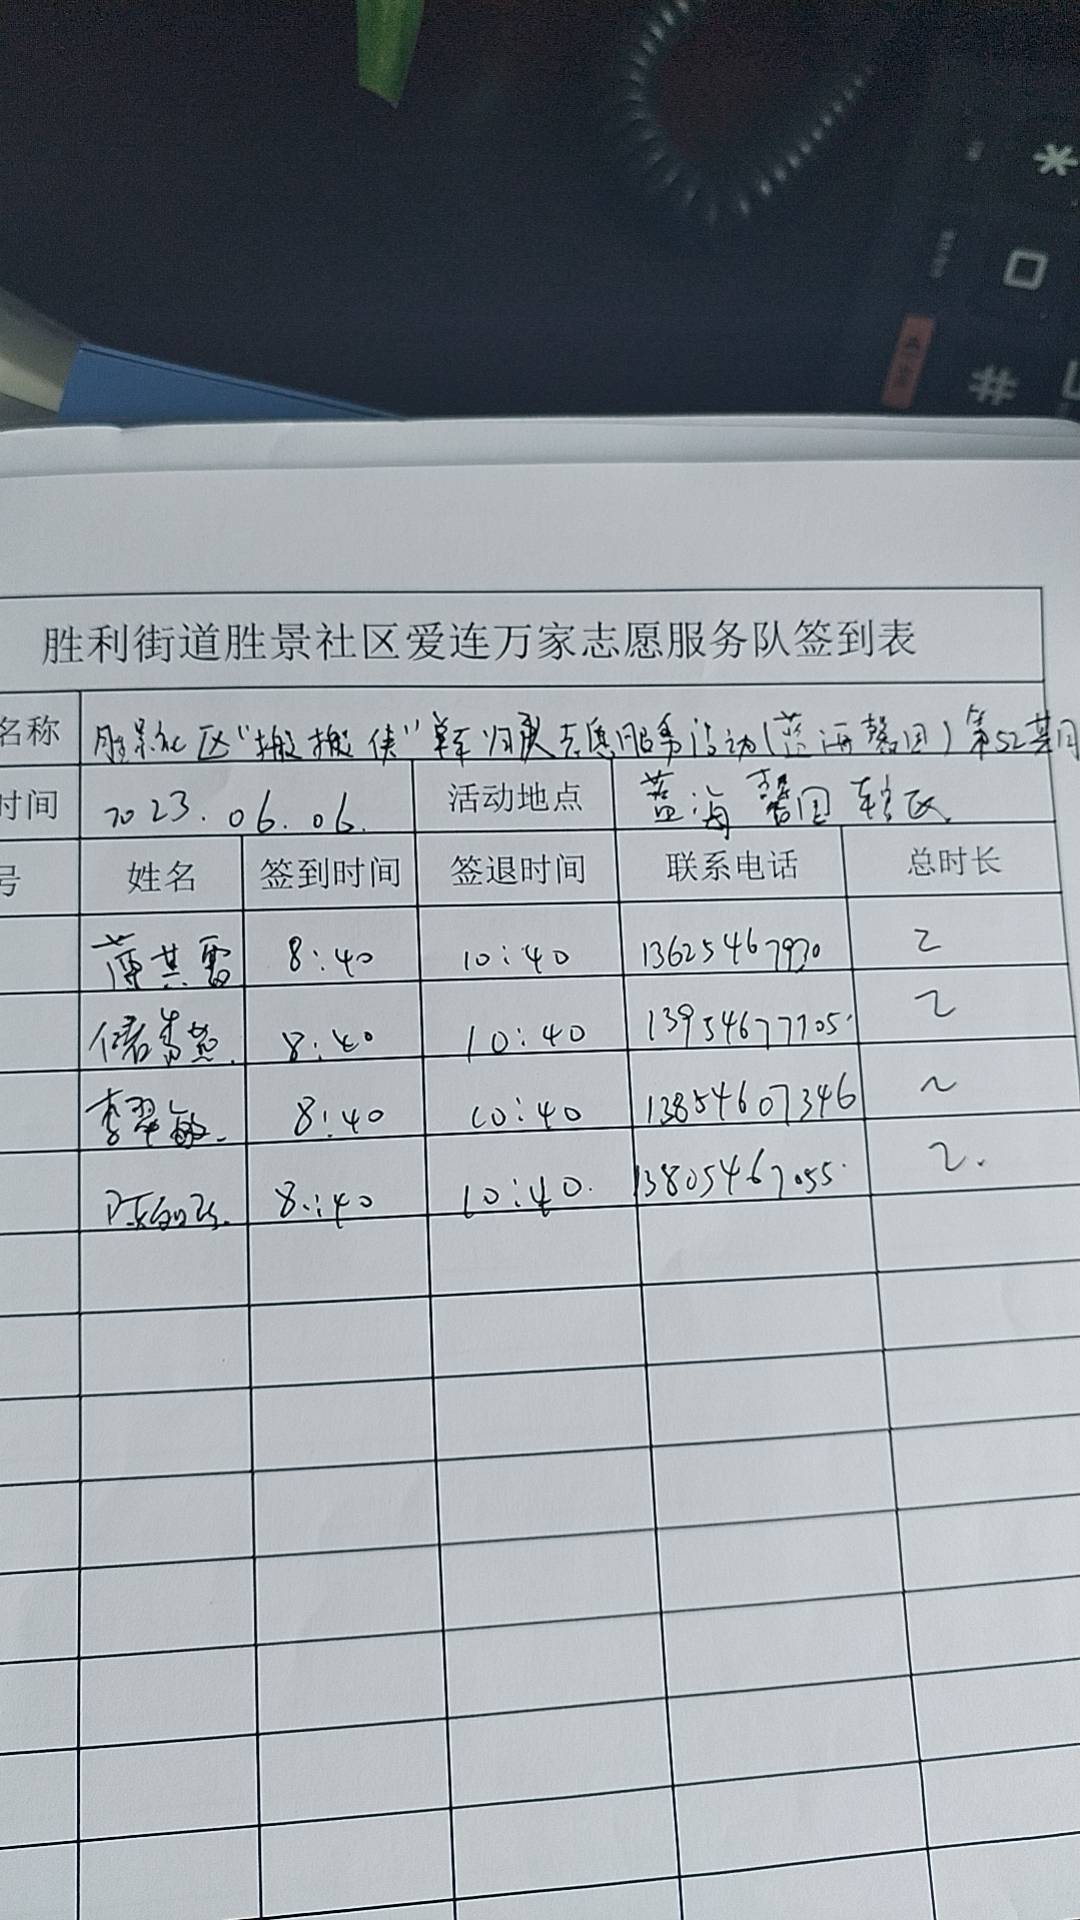 *
#
胜利街道胜景社区爱连万家志愿服务队签到表
名称 胜景社区“搬搬侠”单车归队志愿服务活动(蓝海馨园)第52期
时间 2023.06.06. 活动地点 蓝海馨园辖区
号 姓名 签到时间 签退时间 联系电话 总时长
薄其雷 8:40 10:40 13625467970 2
储秀慧 8:40 10:40 13954677705 2
李翠敏 8:40 10:40 13854607346 2
8:40 10:40 13805467055 2